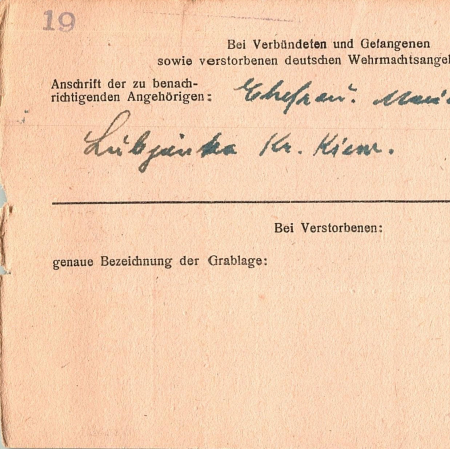 19
Bei Verbündeten und Gefangenen
sowie verstorbenen deutschen Wehrmachtsangel
Anschrift der zu benach-
richtigenden Angehörigen: Ehefrau. Maria
Lubjanka Kr. Kiew.
Bei Verstorbenen:
genaue Bezeichnung der Grablage: